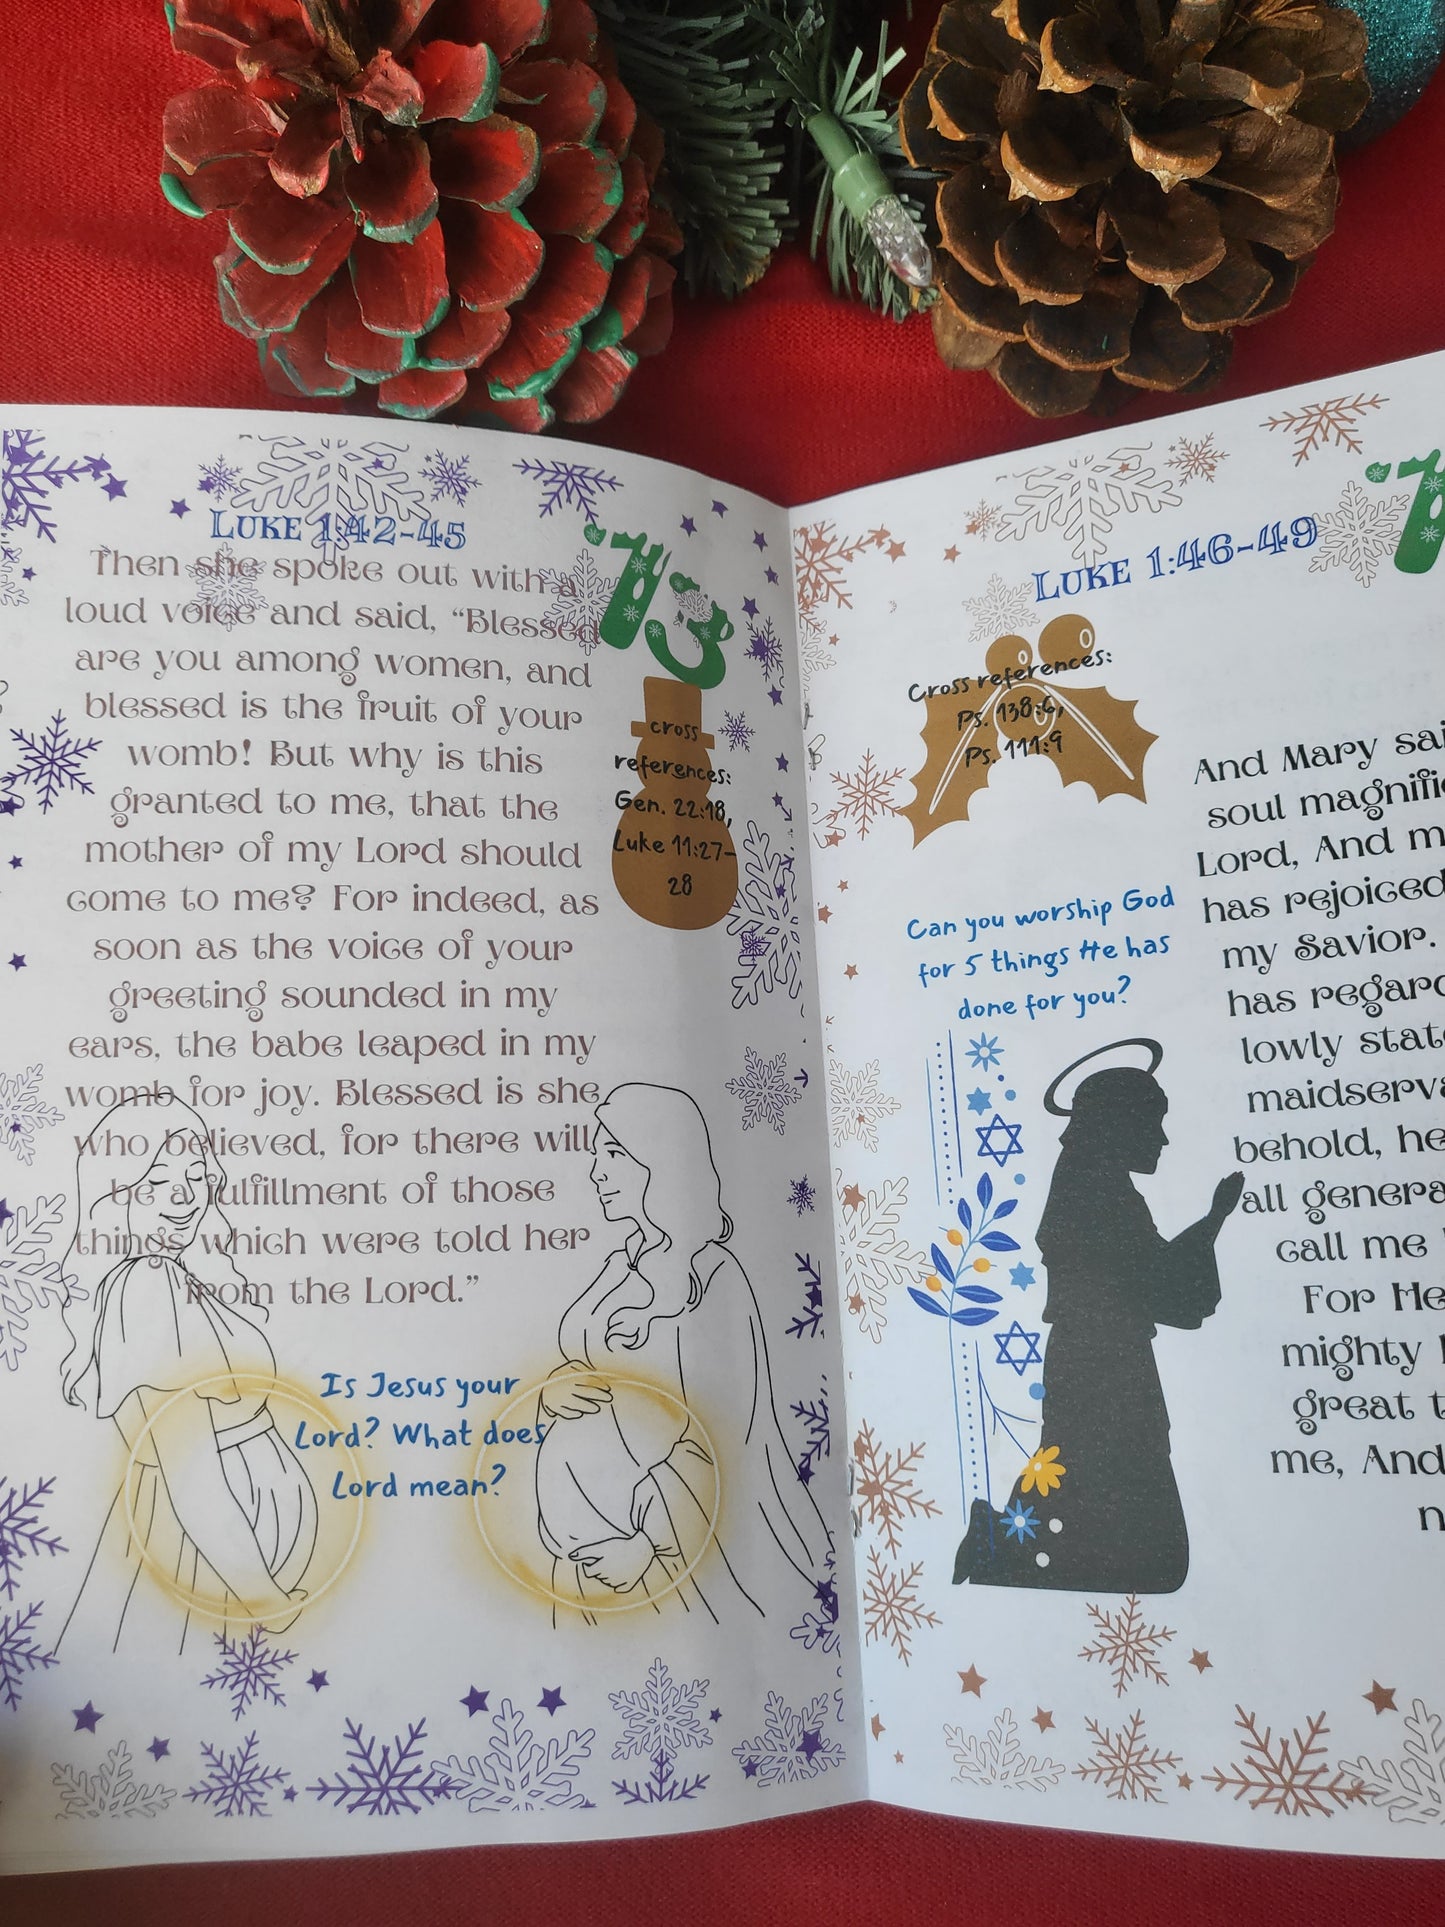 Luke 1:42-45
13
Then she spoke out with a
loud voice and said, "Blessed
are you among women, and
blessed is the fruit of your
womb! But why is this
granted to me, that the
mother of my Lord should
come to me? For indeed, as
soon as the voice of your
greeting sounded in my
ears, the babe leaped in my
womb for joy. Blessed is she
who believed, for there will
be a fulfillment of those
things which were told her
from the Lord."
cross
references:
Gen. 22:18,
Luke 11:27-
28
Is Jesus your
Lord? What does
Lord mean?
Luke 1:46-49
Cross references:
Ps. 138:6,
Ps. 111:9
Can you worship God
for 5 things He has
done for you?
And Mary
soul
Lord, And
has rejoiced
my Savior.
has
lowly
behold,
all
call me
For He
mighty
great
me, And